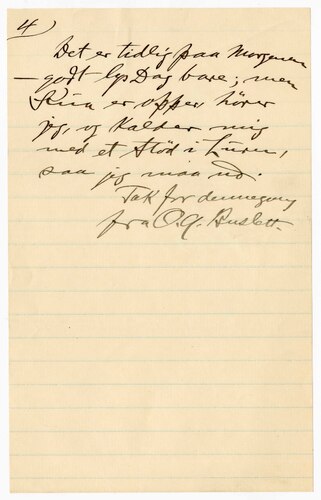 4)
Det er tidlig paa Morgenen
— godt lys Dag bare; men
er oppe, hører
jeg, og Kalder mig
med et Stød i Luren,
saa jeg maa ud.
Tak for dennegang
fra O. A. Buslett